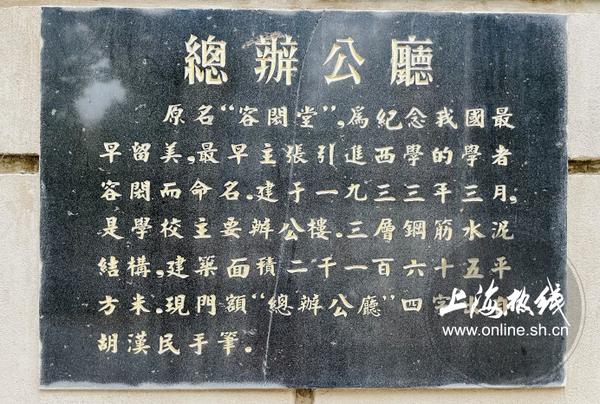 總辦公廳
原名“容閎堂”,爲紀念我國最
早留美,最早主張引進西學的學者
容閎而命名.建于一九三三年三月,
是學校主要辦公樓.三層鋼筋水泥
結構,建築面積二千一百六十五平
方米.現門額“總辦公廳”四字
胡漢民手筆.
上海热线
www.online.sh.cn